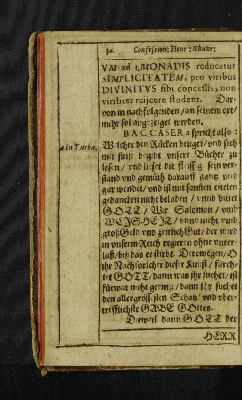 34 Confessio: Henr: Khunr:
VM ad MONADIS reducatur
SIMPLICITATEM, pro viribus
DIVINITVS sibi concessis, non
viriliter reijcere student. Dar-
von in nachfolgenden / an seinem ort /
mehr sol angezeiget werden.
BACCASER spricht also:
a in Turba.
Welcher den Rücken beuget / und sich
mit fleiß begibt unsere Bücher zu
lesen / und lieset die fleissig / sein ver-
stand und gemüth darauff gantz und
gar wendet / und ist mit sonsten eitelen
gedancken nicht beladen / unnd bittet
GOTT / Wie Salomon / umb
WEISHEIT / unnd nicht umb
groß Geld und zeitlich Gut / der wird
in unserm Reich regieren ohne unter-
laß / biß das er stirbt. Derowegen / O
ihr Nachforscher dieser Kunst / fürch-
tet GOTT / dann was ihr suchet / ist
fürwar nicht gering / dann ihr suchet
den allergrössten Schatz / und uber-
trefflichste GABE GOttes.
Dieweil dann GOTT der
HERR